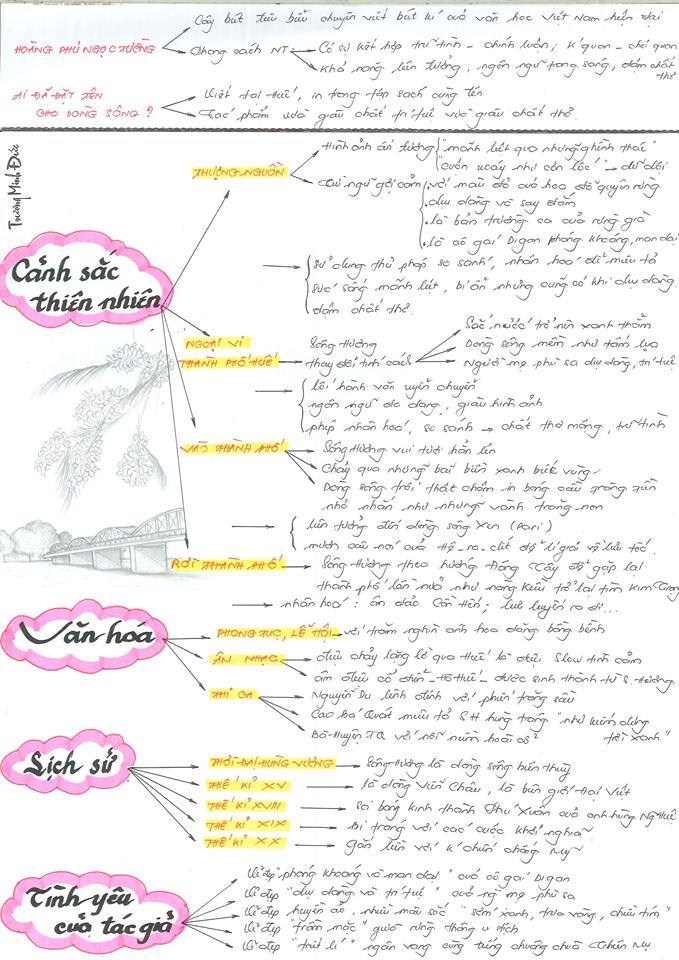 HOÀNG PHỦ NGỌC TƯỜNG
Cây bút tiêu biểu chuyên viết bút kí của văn học Việt Nam hiện đại
Phong cách NT
Có sự kết hợp trữ tình – chính luận; k' quan – chủ quan
Khả năng liên tưởng, ngôn ngữ trong sáng, đậm chất thơ
AI ĐÃ ĐẶT TÊN
CHO DÒNG SÔNG ?
Viết tại Huế, in trong tập sách cùng tên
Tác phẩm vừa giàu chất trí tuệ vừa giàu chất thơ.
Trương Minh Đức
Cảnh sắc
thiên nhiên
THƯỢNG NGUỒN
Hình ảnh ấn tượng
"mãnh liệt qua những ghềnh thác"
"cuộn xoáy như cơn lốc" → dữ dội
Từ ngữ gợi cảm
với màu đỏ của hoa đỗ quyên rừng
dịu dàng và say đắm
là bản trường ca của rừng già
là cô gái Digan phóng khoáng, man dại
sử dụng thủ pháp so sánh, nhân hoá để miêu tả
sức sống mãnh liệt, bí ẩn nhưng cũng có khi dịu dàng.
đậm chất thơ.
NGOẠI VI
THÀNH PHỐ HUẾ
Sông Hương
thay đổi tính cách
Sắc nước trở nên xanh thẳm
Dòng sông mềm như tấm lụa
Người mẹ phù sa dịu dàng, trí tuệ
lối hành văn uyển chuyển
ngôn ngữ đa dạng, giàu hình ảnh
phép nhân hoá, so sánh → chất thơ mộng, trữ tình
VÀO THÀNH PHỐ
Sông Hương vui tươi hẳn lên
Chảy qua những bãi biền xanh biếc vùng
Dòng sông trôi thật chậm in bóng cầu tràng tiền
nhỏ nhắn như những vành trăng non
liên tưởng đến dòng sông Xen (Pari)
mượn câu nói của Hê-ra-clít để lí giải về lưu tốc.
RỜI THÀNH PHỐ
Sông Hương theo hướng Đông Tây để gặp lại
thành phố lần nữa như nàng Kiều trở lại tìm Kim Trọng
nhân hoá: ân đảo Cồn Hến; lưu luyến ra đi...
Văn hóa
PHONG TỤC, LỄ HỘI
với trăm nghìn ánh hoa đăng bồng bềnh
ÂM NHẠC
điệu chảy lặng lẽ qua Huế là điệu slow tình cảm
âm điệu cổ điển – Hò Huế – được sinh thành từ S. Hương
THI CA
Nguyễn Du lênh đênh với phiến trăng sầu
Cao Bá Quát miêu tả S H hùng tráng "như kiếm dựng
trời xanh"
Bà Huyện TQ với nỗi niềm hoài cổ
Lịch sử
THỜI ĐẠI HÙNG VƯƠNG
Sông Hương là dòng sông biên thuỳ
THẾ KỈ XV
là dòng Viễn Châu, là biên giới Đại Việt
THẾ KỈ XVIII
soi bóng kinh thành Phú Xuân của anh hùng Ng Huệ
THẾ KỈ XIX
Bi tráng với các cuộc khởi nghĩa
THẾ KỈ XX
gắn liền với k/ chiến chống Mỹ
Tình yêu
của tác giả
Vẻ đẹp "phóng khoáng và man dại" của cô gái Digan
Vẻ đẹp "dịu dàng và trí tuệ" của ng mẹ phù sa
Vẻ đẹp huyền ảo, nhiều màu sắc "sớm xanh, trưa vàng, chiều tím"
Vẻ đẹp "trầm mặc" giữa rừng thông u tịch
Vẻ đẹp "triết lí" ngân vang cùng tiếng chuông chùa Thiên Mụ